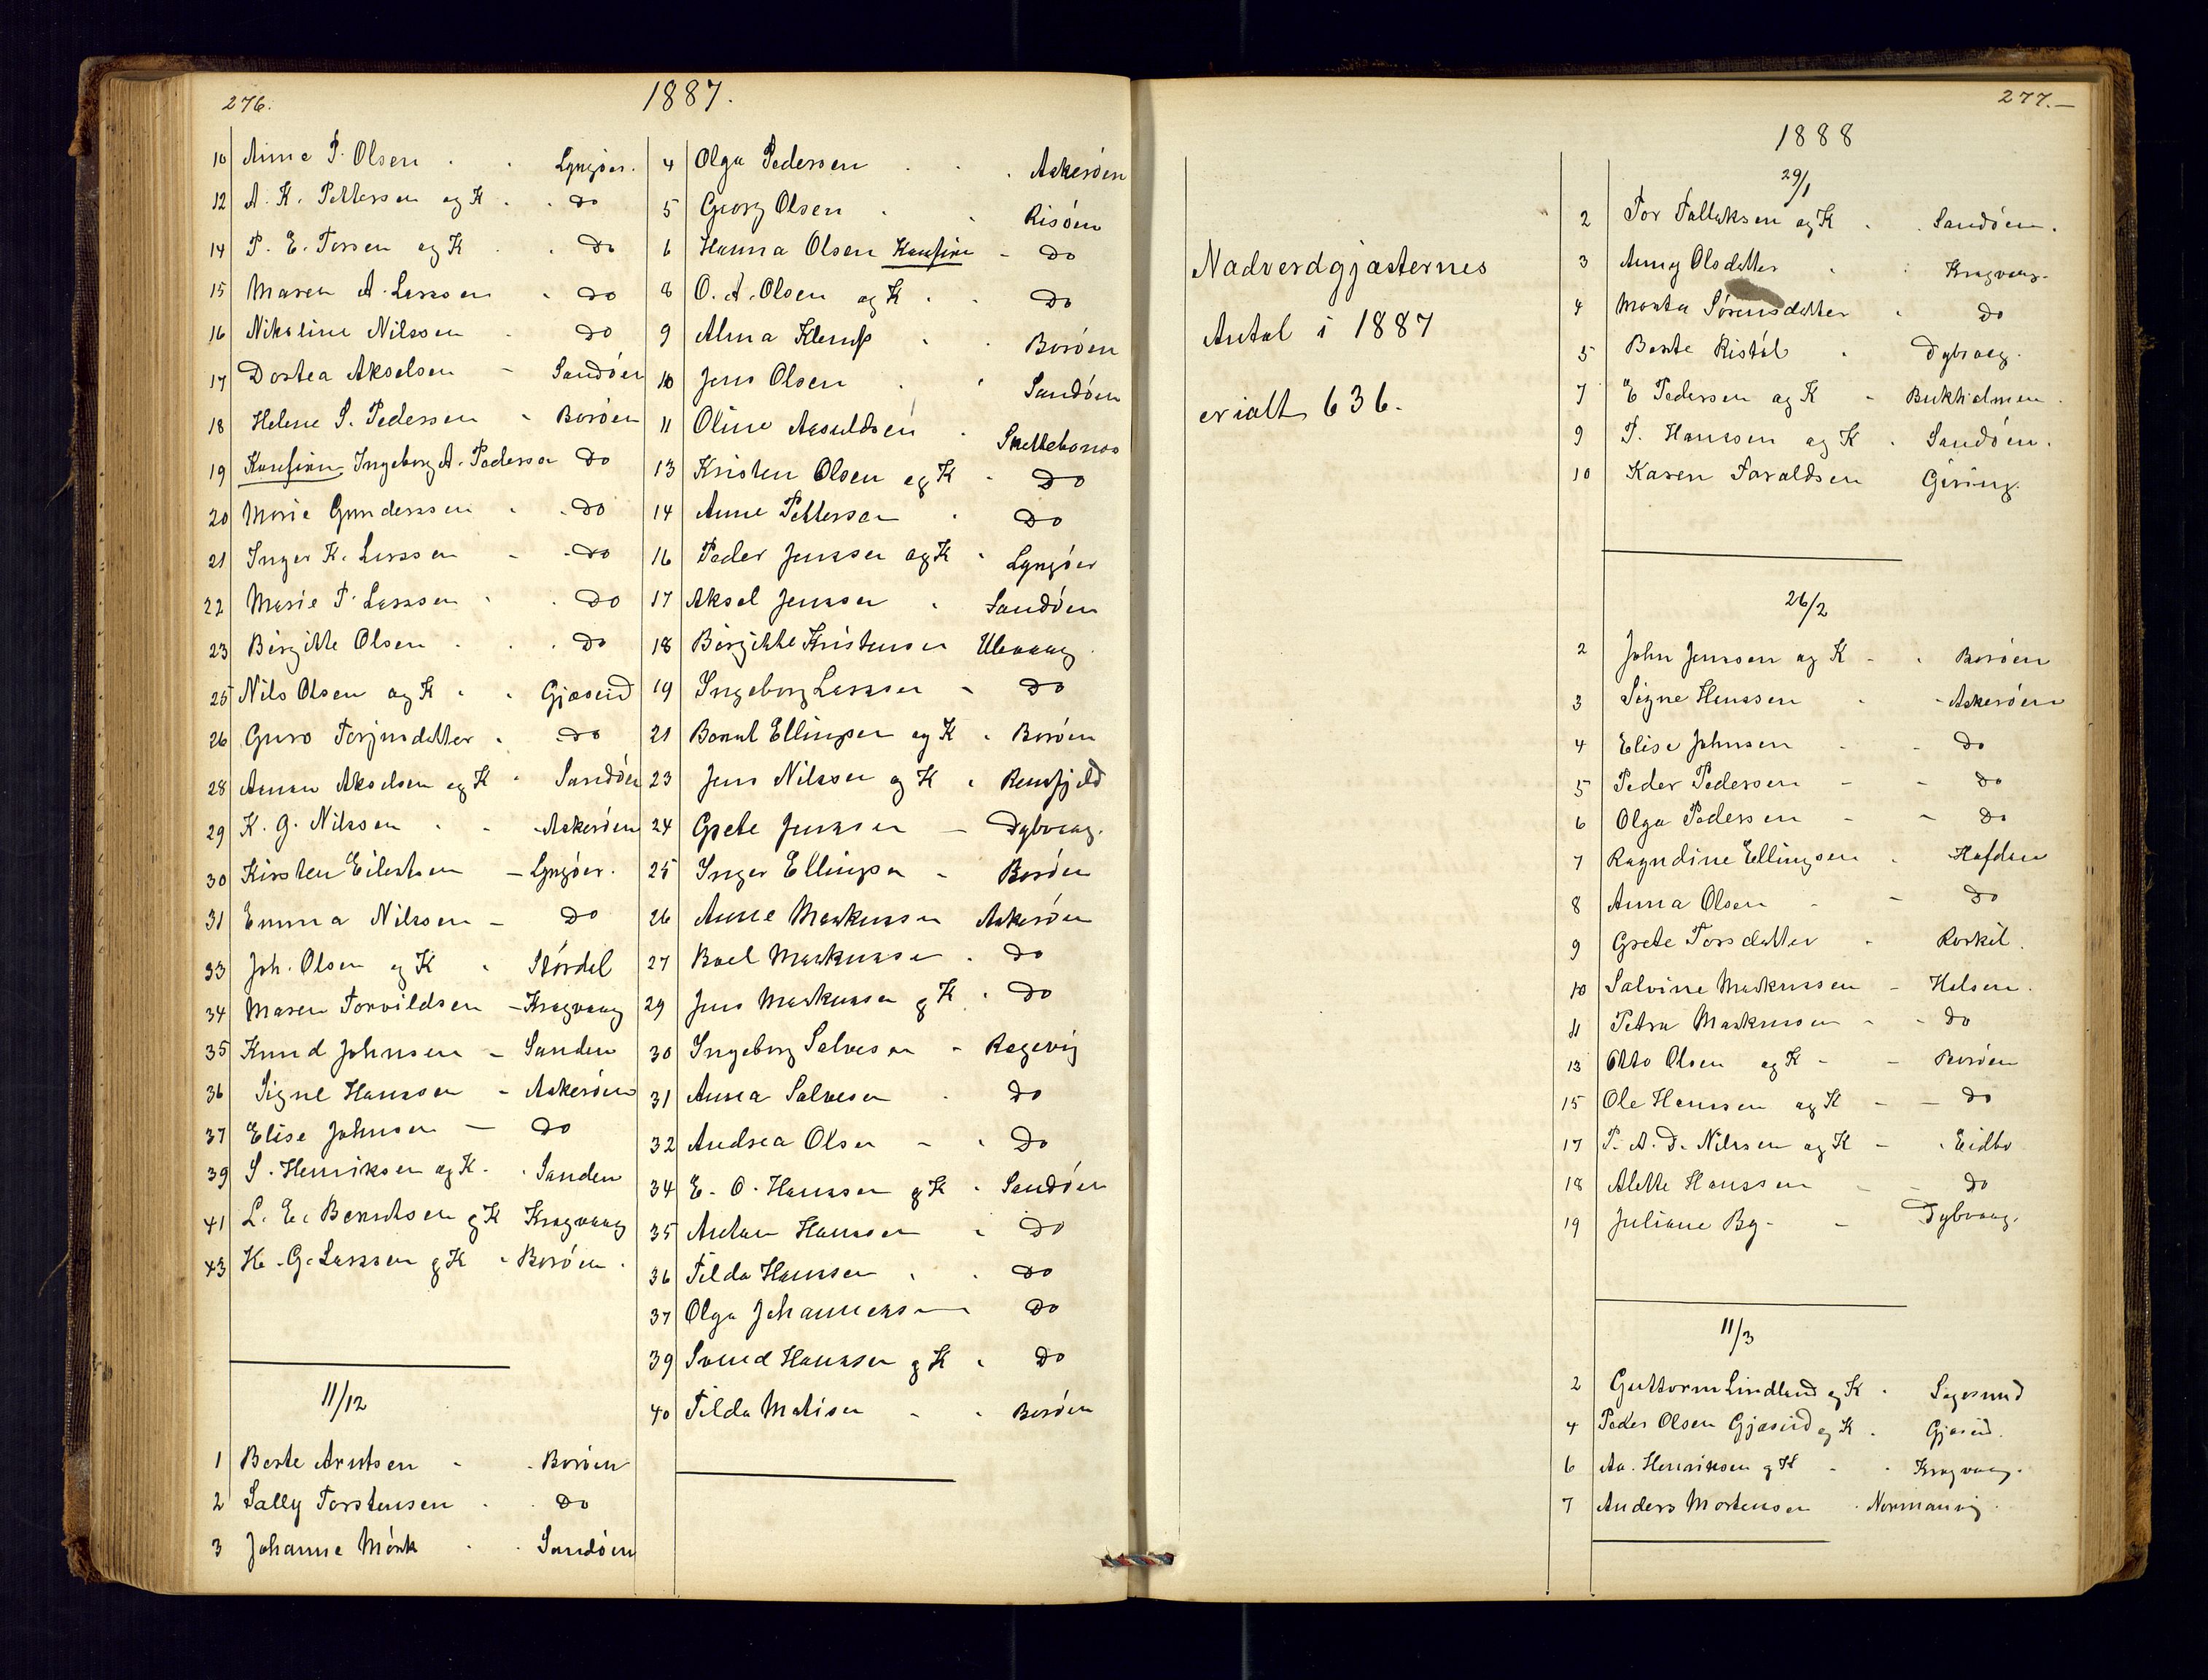 276.
1887.
10 Anne P. Olsen Lyngöer.
12 A. K. Pettersen og K Do
14 P. E. Torsen og K Do
15 Maren A. Larssen Do
16 Nikoline Nilssen Do
17 Dortea Akselsen Sandöen
18 Helene S. Pederssen Boröen
19 Konfirm Ingeborg A. Pedersen Do
20 Marie Gunderssen Do
21 Inger K. Larssen Do
22 Marie P. Larssen Do
23 Birgitte Olsen Do
25 Nils Olsen og K Gjæseid
26 Guro Torjusdatter Do
28 Akselsen og K Sandöen
29 K. G. Nilssen Askeröen
30 Kirsten Eilertsen Lyngöer.
31 Emma Nilssen Do
33 Joh. Olsen og K Stördal
34 Maren Torvildsen Kragvaag
35 Knud Johnsen Sanden
36 Signe Hanssen Askeröen
37 Elise Johnsen Do
39 S. Henriksen og K. Sanden
41 L. E. Berntsen og K Kragvaag
43 K. G. Larssen og K Boröen.
11/12
1 Berte Arntsen Boröen
2 Sally Torstensen Do
3 Johanne Mörk Sandöen
4 Olga Pederssen Askeröen
5 Georg Olsen Risöen
6 Hanna Olsen Konfirm Do
8 O. A. Olsen og K Do
9 Alma Klemp Boröen
10 Jens Olsen Sandöen
11 Oline Aasuldsen
13 Kristen Olsen og K Do
14 Anne Pettersen Do
16 Peder Jenssen og K Lyngöer
17 Aksel Jenssen Sandöen
18 Birgitte Kristensen Ulevaag
19 Ingeborg Larssen Do
21 Ellingsen og K Boröen
23 Jens Nilssen og K Rensfjeld
24 Grete Jenssen Dybvaag.
25 Inger Ellingsen Boröen
26 Anne Markussen Askeröen
27 Boel Markussen Do
29 Jens Markussen og K Do
30 Ingeborg Salvesen Ragevig
31 Anna Salvesen Do
32 Andrea Olsen Do
34 E. O. Hanssen og K Sandöen
35 Anton Hanssen Do
36 Tilda Hanssen Do
37 Olga Johannessen Do
39 Svend Hanssen og K Do
40 Tilda Matisen Boröen
277.—
Nadverdgjæsternes
Antal i 1887
er ialt 636.
1888
29/1
2 Tor Tallaksen og K Sandöen.
3 Anny Olsdatter Kragvaag.
4 Marta Sörensdatter Do
5 Berte Ristöl Dybvaag.
7 E Pedersen og K Bukholmen.
9 P. Hanssen og K Sandöen.
10 Karen Taraldsen Giving.
26/2
2 John Jenssen og K Boröen
3 Signe Hanssen Askeröen
4 Elise Johnsen Do
5 Peder Pederssen Do
6 Olga Pederssen Do
7 Ragndine Ellingsen
8 Anna Olsen Do
9 Grete Torsdatter
10 Salvine Markussen
11 Petra Markussen Do
13 Otto Olsen og K Boröen
15 Ole Hanssen og K Do
17 P. A. D. Nilssen og K Eidbo
18 Alette Hanssen Do
19 Juliane By Dybvaag.
11/3
2 Guttorm Lindland og K Sagesund
4 Peder Olsen Gjæseid og K Gjæseid.
6 Aa. Henriksen og K Kragvaag.
7 Anders Mortensen Normanvig.